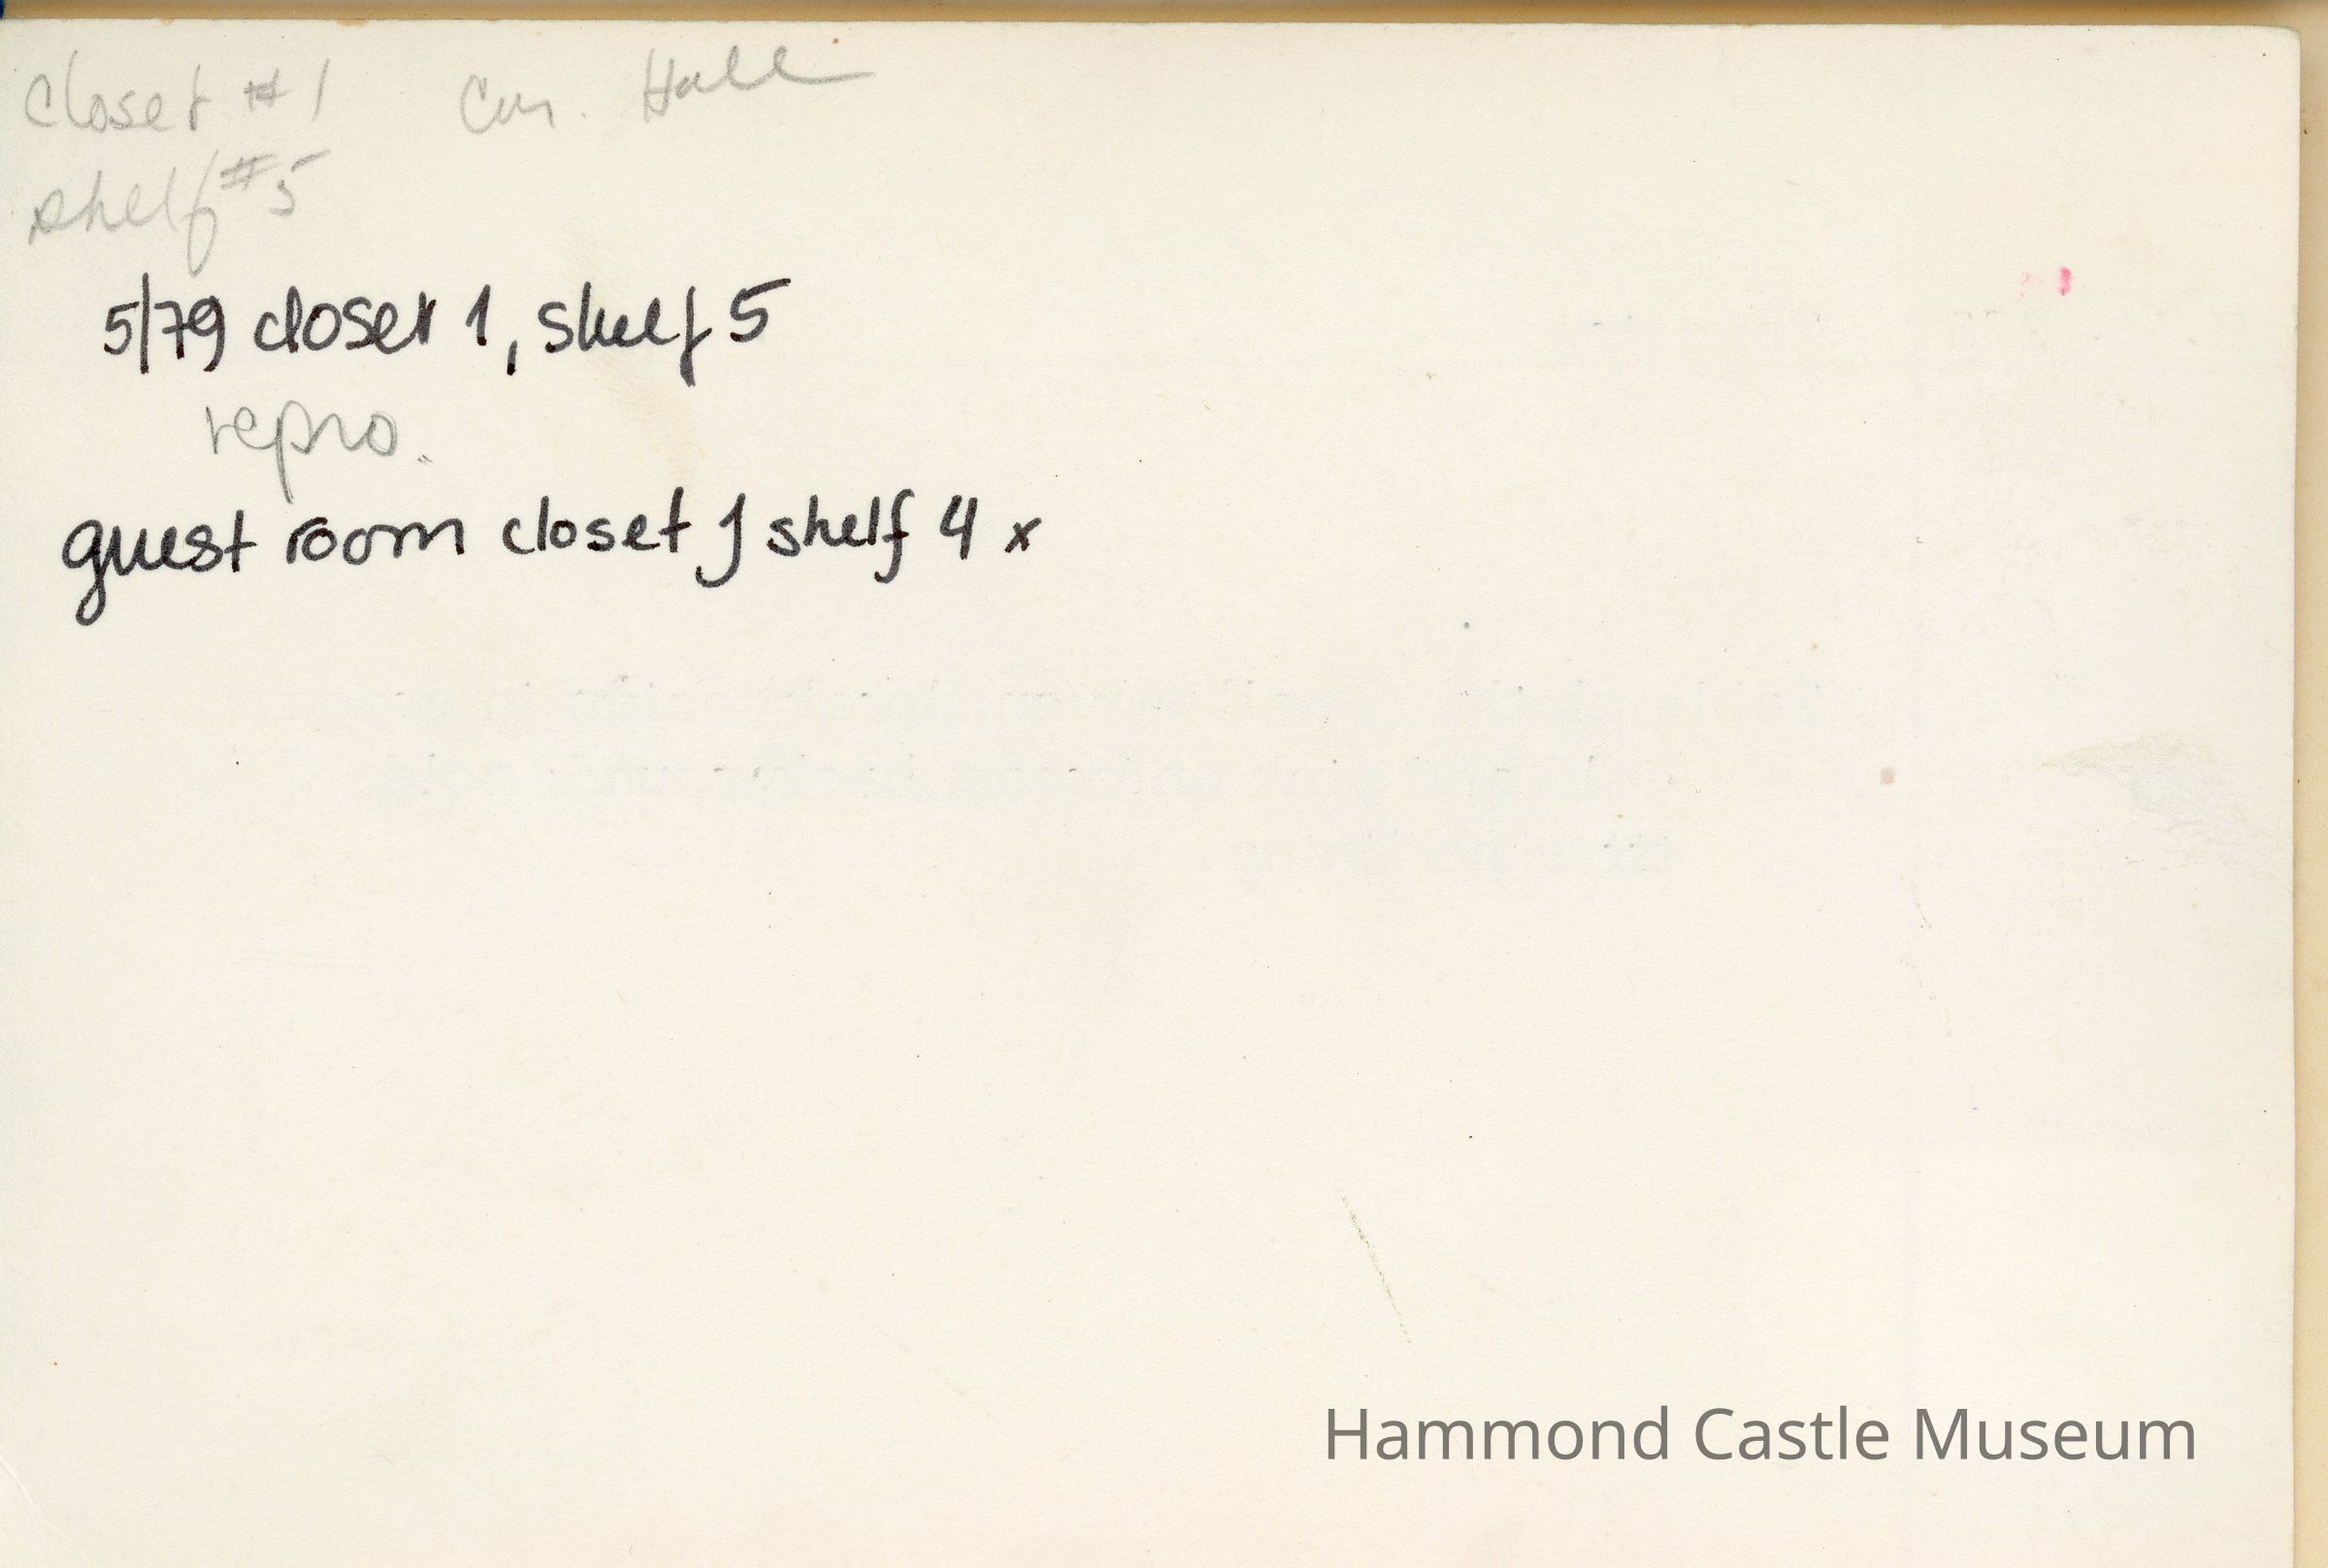 closet #1 Cur. Hall
shelf #5
5/79 closet 1, shelf 5
repro.
guest room closet J shelf 4 x
Hammond Castle Museum